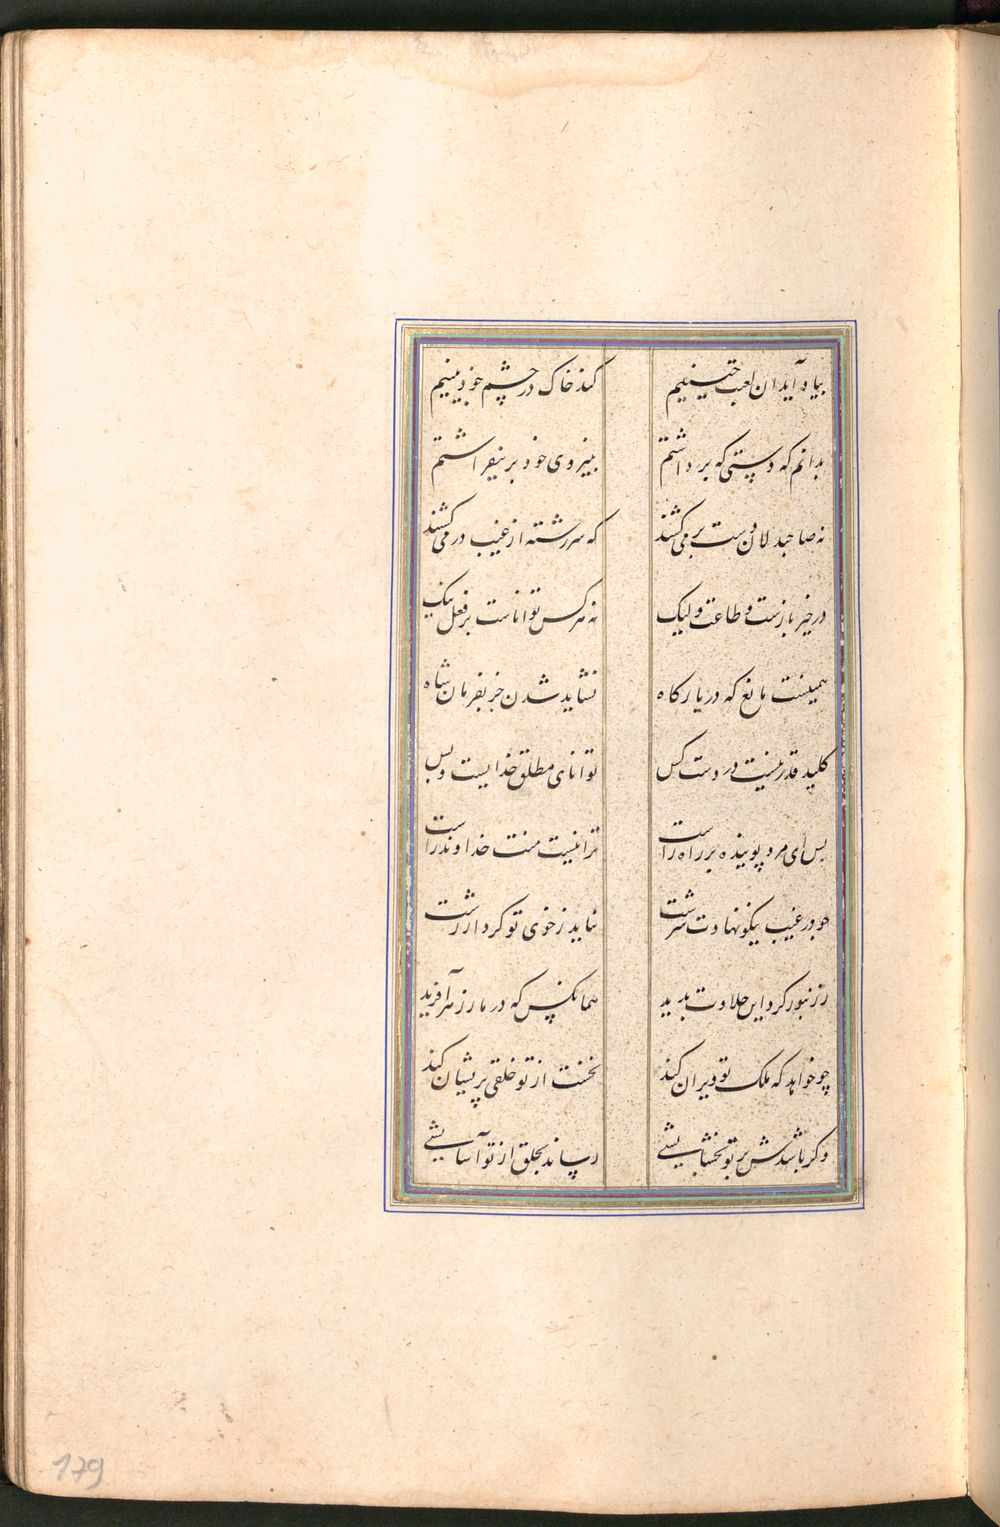 بیاد آید ان لعبت چینیم کند خاک در چشم خود بینیم
بدانم که دستی که برداشتم بنیروی خود برنیفراشتم
نه صاحبدلان دست برمی کشند که سررشته از غیب درمی کشند
در خیر بازست و طاعت ولیک نه هر کس تواناست بر فعل نیک
همینست مانع که در بارکاه نشاید شدن جز بفرمان شاه
کلید قدر نیست در دست کس توانای مطلق خدایست و بس
بس ای مرد پوینده بر راه راست ترا نیست منت خداوند راست
چو در غیب نیکو نهادت سرشت نیاید ز خوی تو کردار زشت
ز زنبور کرد این حلاوت پدید همانکس که در مار زهر آفرید
چو خواهد که ملک تو ویران کند نخست از تو خلقی پریشان کند
وکر باشدش بر تو بخشایشی رساند بخلق از تو آسایشی
179